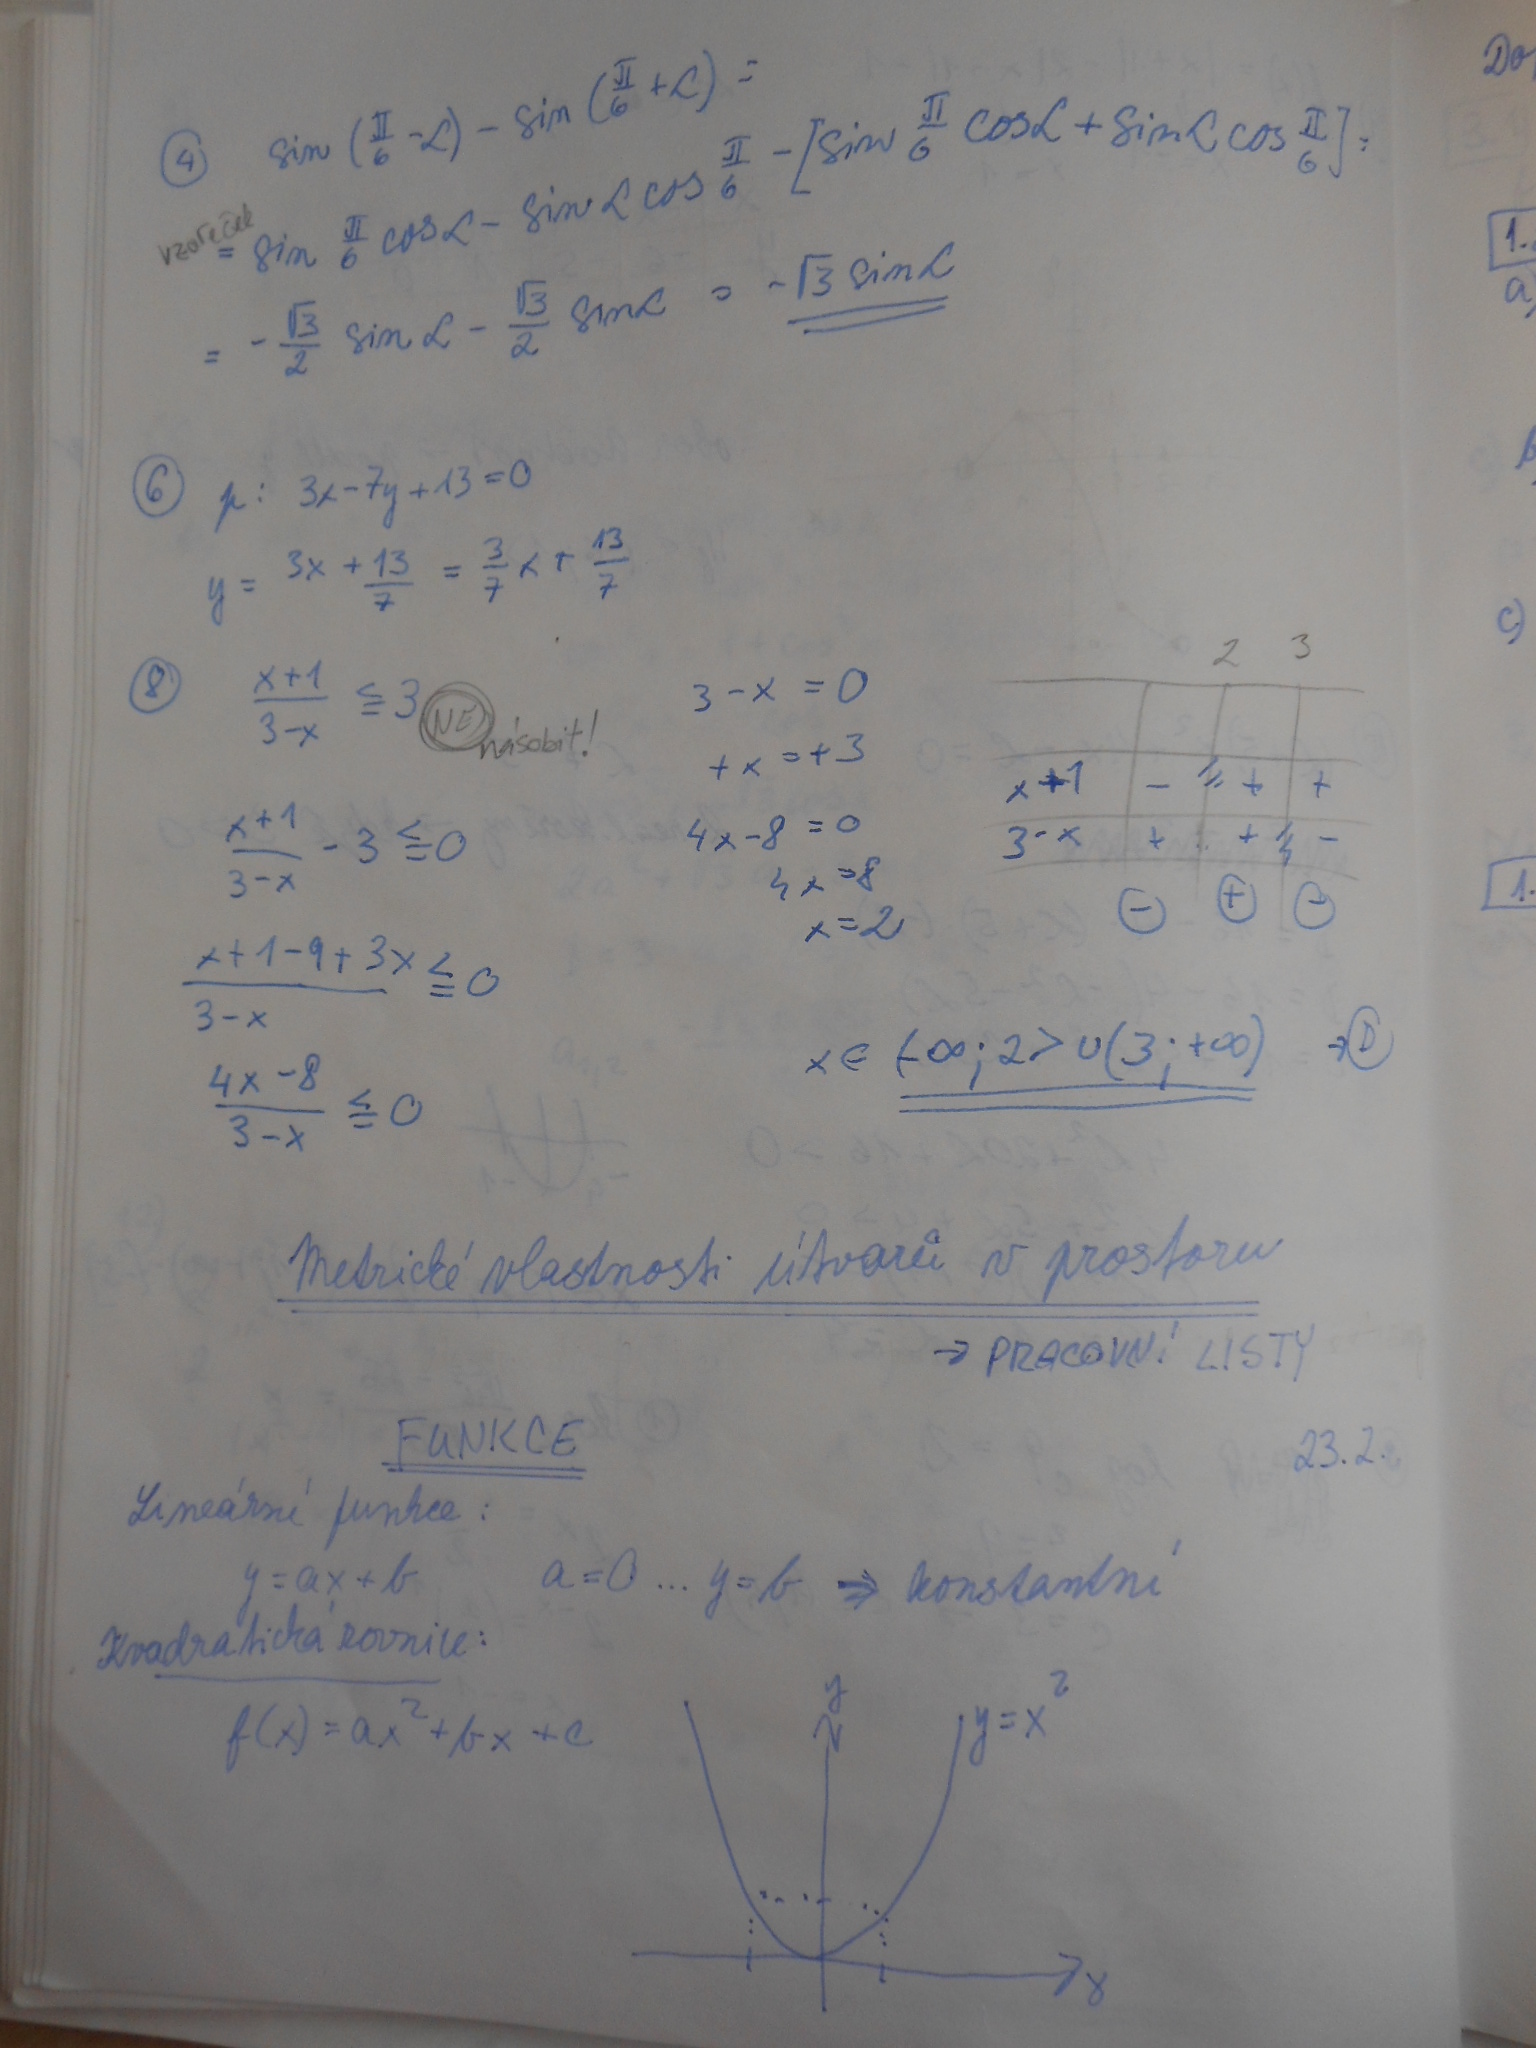 ④ sin (π/6 - α) - sin (π/6 + α) =
vzoreček
= sin π/6 cos α - sin α cos π/6 - [sin π/6 cos α + sin α cos π/6] =
= - √3/2 sin α - √3/2 sin α = - √3 sin α
⑥ p: 3x - 7y + 13 = 0
y = 3x + 13/7 = 3/7 x + 13/7
⑧ x+1/3-x ≦ 3 NE násobit!
x+1/3-x - 3 ≦ 0
x+1-9+3x/3-x ≦ 0
4x-8/3-x ≦ 0
3 - x = 0
+x = +3
4x - 8 = 0
4x = 8
x = 2
2 3
x+1 - + +
3-x + + -
- + -
x ∈ (-∞; 2> ∪ (3; +∞) → D
Metrické vlastnosti útvarů v prostoru
→ PRACOVNÍ LISTY
FUNKCE 23.2.
Lineární funkce:
y = ax + b a = 0 ... y = b ⇒ konstantní
Kvadratická rovnice:
f(x) = ax² + bx + c
y
y = x²
x
Dop
1.
a)
b)
c)
1.